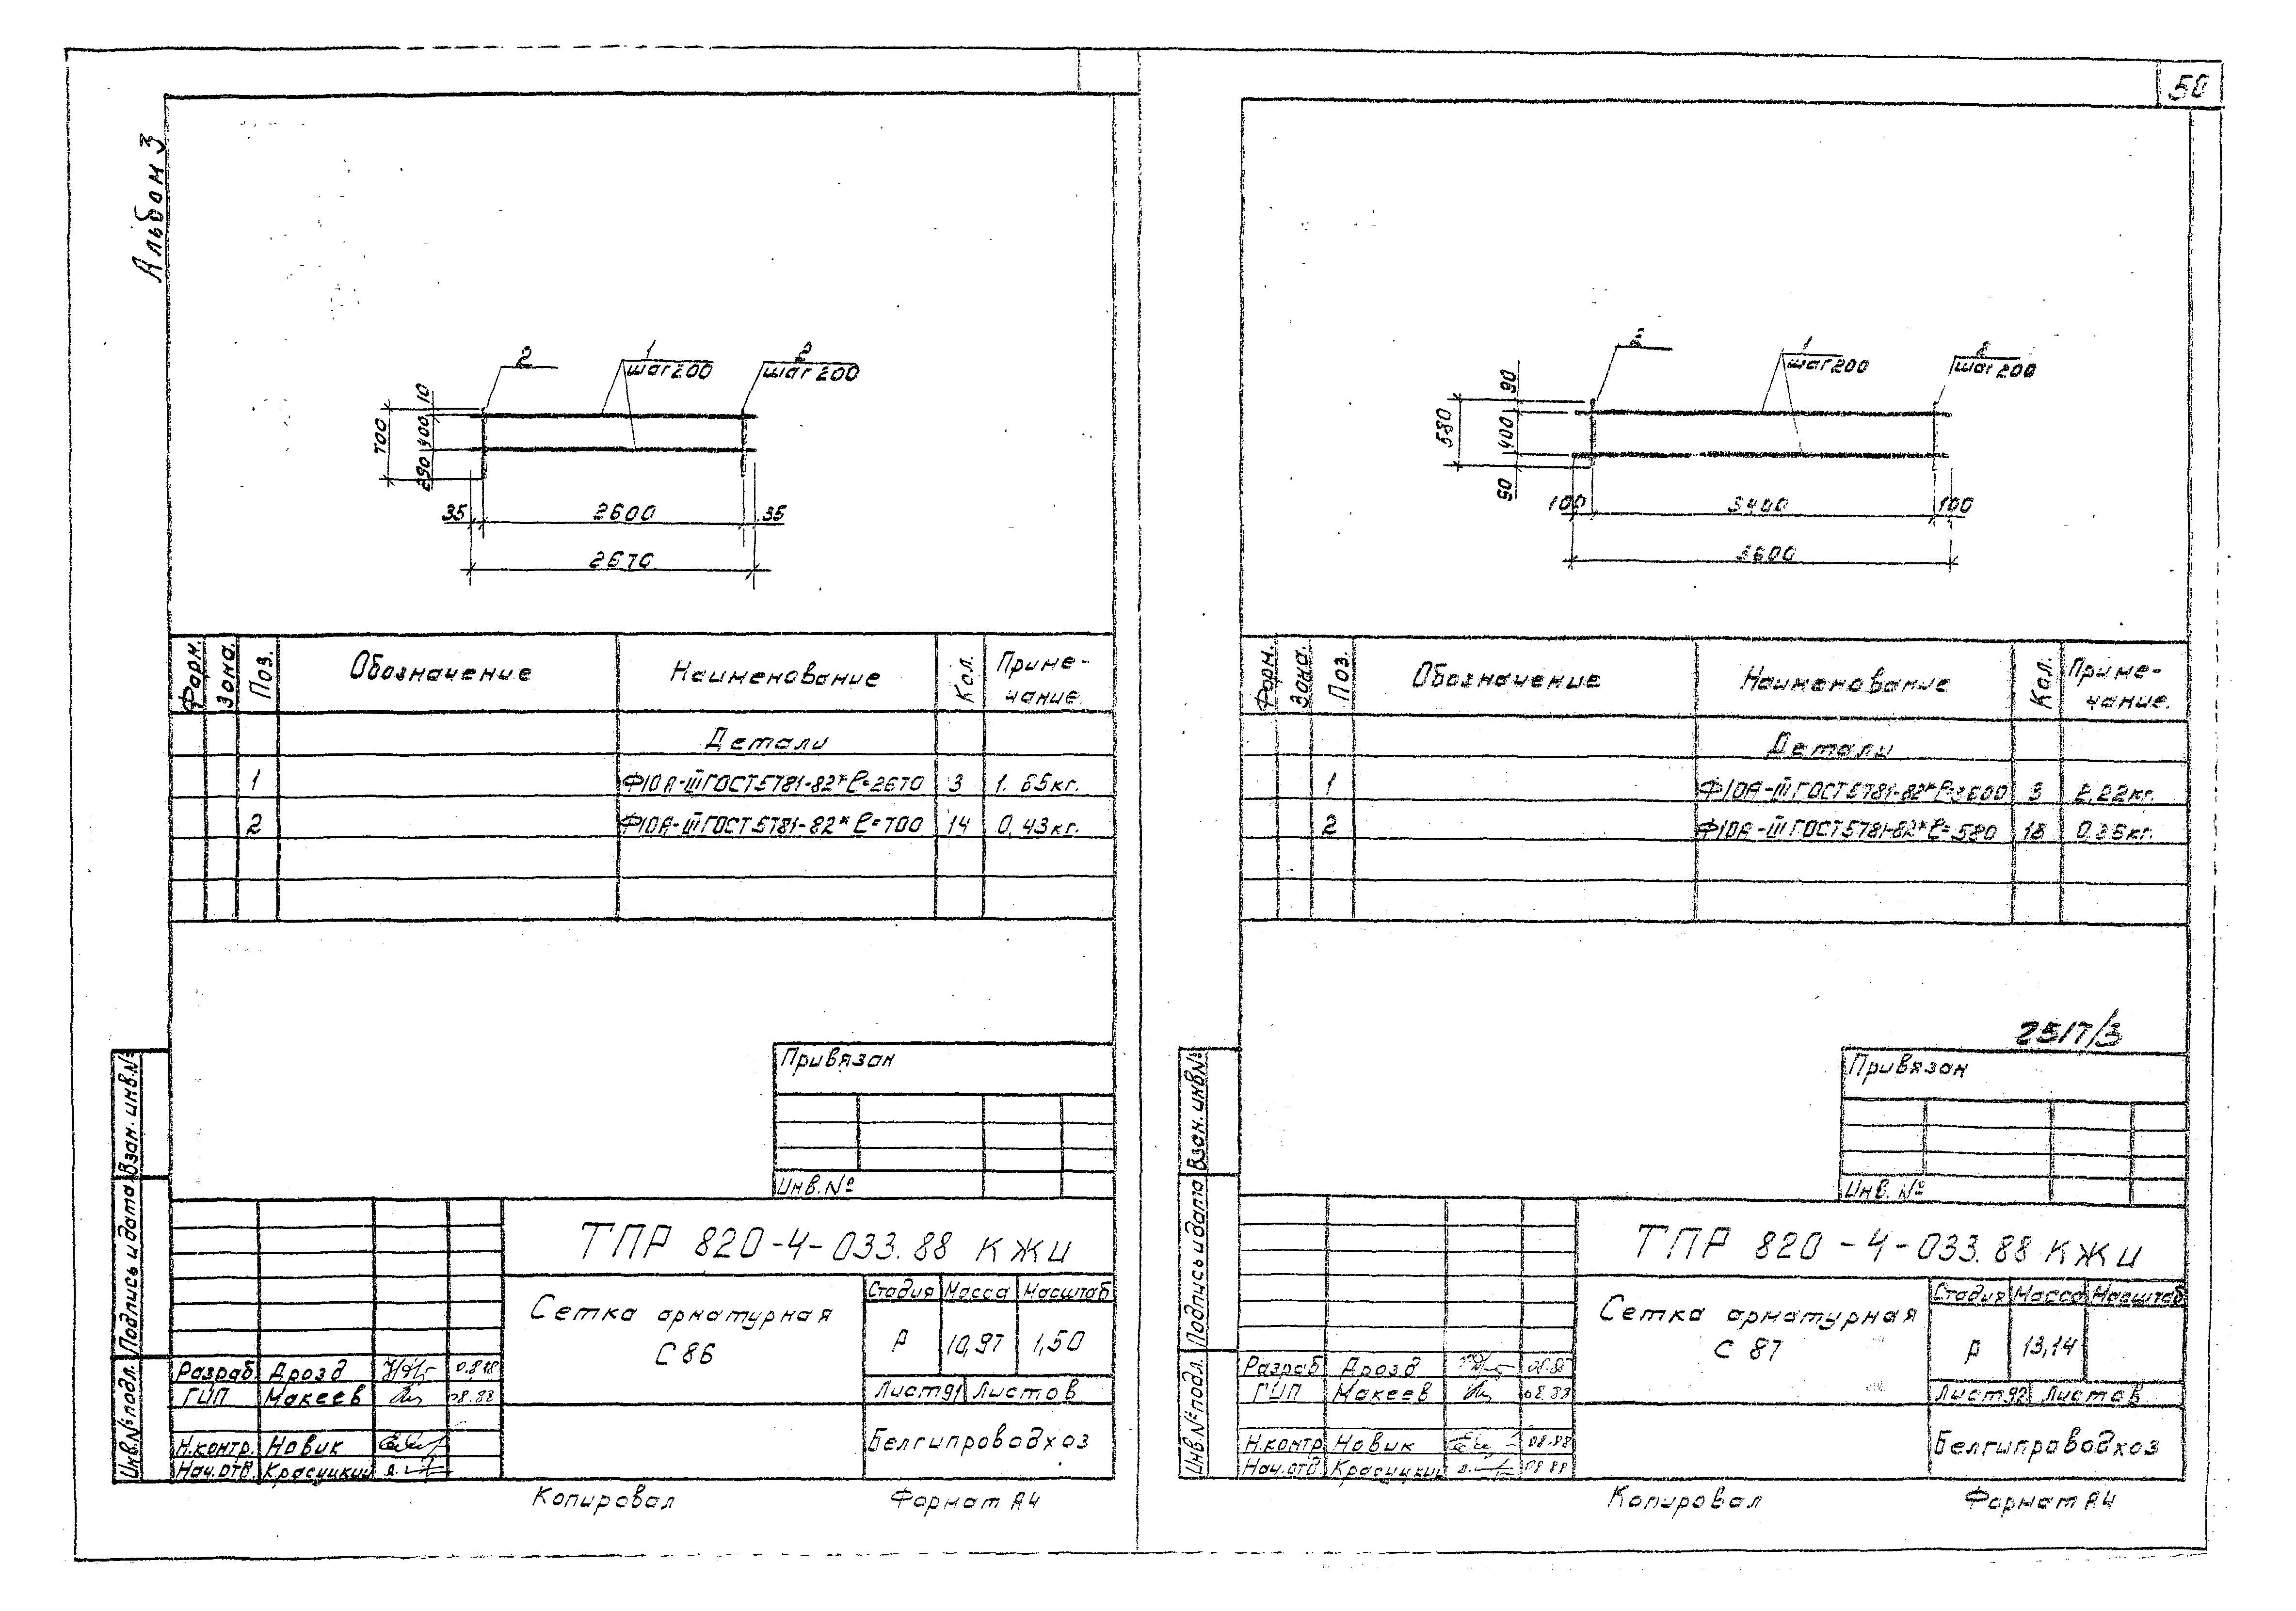 50
Альбом 3
2
1
шаг 200
2
шаг 200
700
290 400 10
35
2600
35
2670
Форм.
Зона.
Поз.
Обозначение
Наименование
Кол.
Приме-
чание.
Детали
1 Ф10А-III ГОСТ 5781-82* ℓ=2670 3 1.65кг.
2 Ф10А-III ГОСТ 5781-82* ℓ=700 14 0,43кг.
Привязан
Инв.№
Взам. инв.№
Подпись и дата
Инв.№подл.
ТПР 820-4-033.88 КЖИ
Сетка арматурная
С 86
Стадия Масса Масштаб
Р 10,97 1,50
Лист 91 Листов
Белгипроводхоз
Разраб. Дрозд
ГИП Макеев 08.88
Н.контр. Новик
Нач.отд. Красуцкий
Копировал
Формат А4
2
1
шаг 200
2
шаг 200
580
400 90
100
3400
100
3600
Форм.
Зона.
Поз.
Обозначение
Наименование
Кол.
Приме-
чание.
Детали
1 Ф10А-III ГОСТ 5781-82* ℓ=3600 3 2,22кг.
2 Ф10А-III ГОСТ 5781-82* ℓ=580 18 0,36кг.
2517/3
Привязан
Инв. №
Взам. инв№
Подпись и дата
Инв.№подл.
ТПР 820-4-033.88 КЖИ
Сетка арматурная
С 87
Стадия Масса Масштаб
Р 13,14
Лист 92 Листов
Белгипроводхоз
Разраб. Дрозд 08.88
ГИП Макеев 08.88
Н.контр. Новик 08.88
Нач.отд. Красуцкий 08.88
Копировал
Формат А4